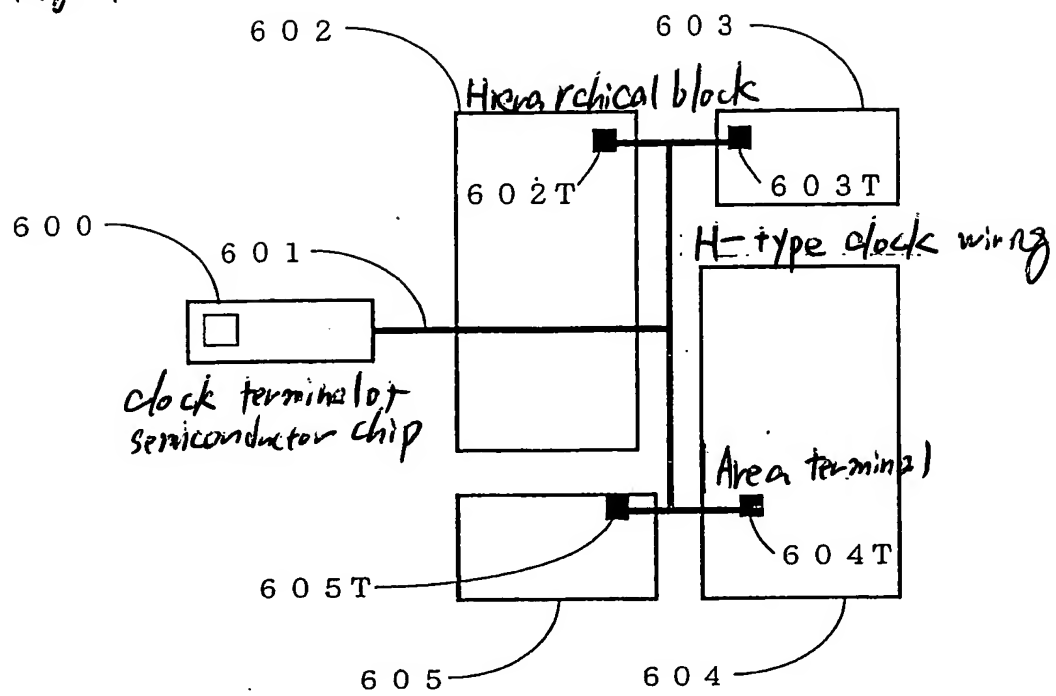 602
603
Hierarchical block
602T
603T
600
601
H-type clock wiring
clock terminal of
semiconductor chip
Area terminal
604T
605T
605
604